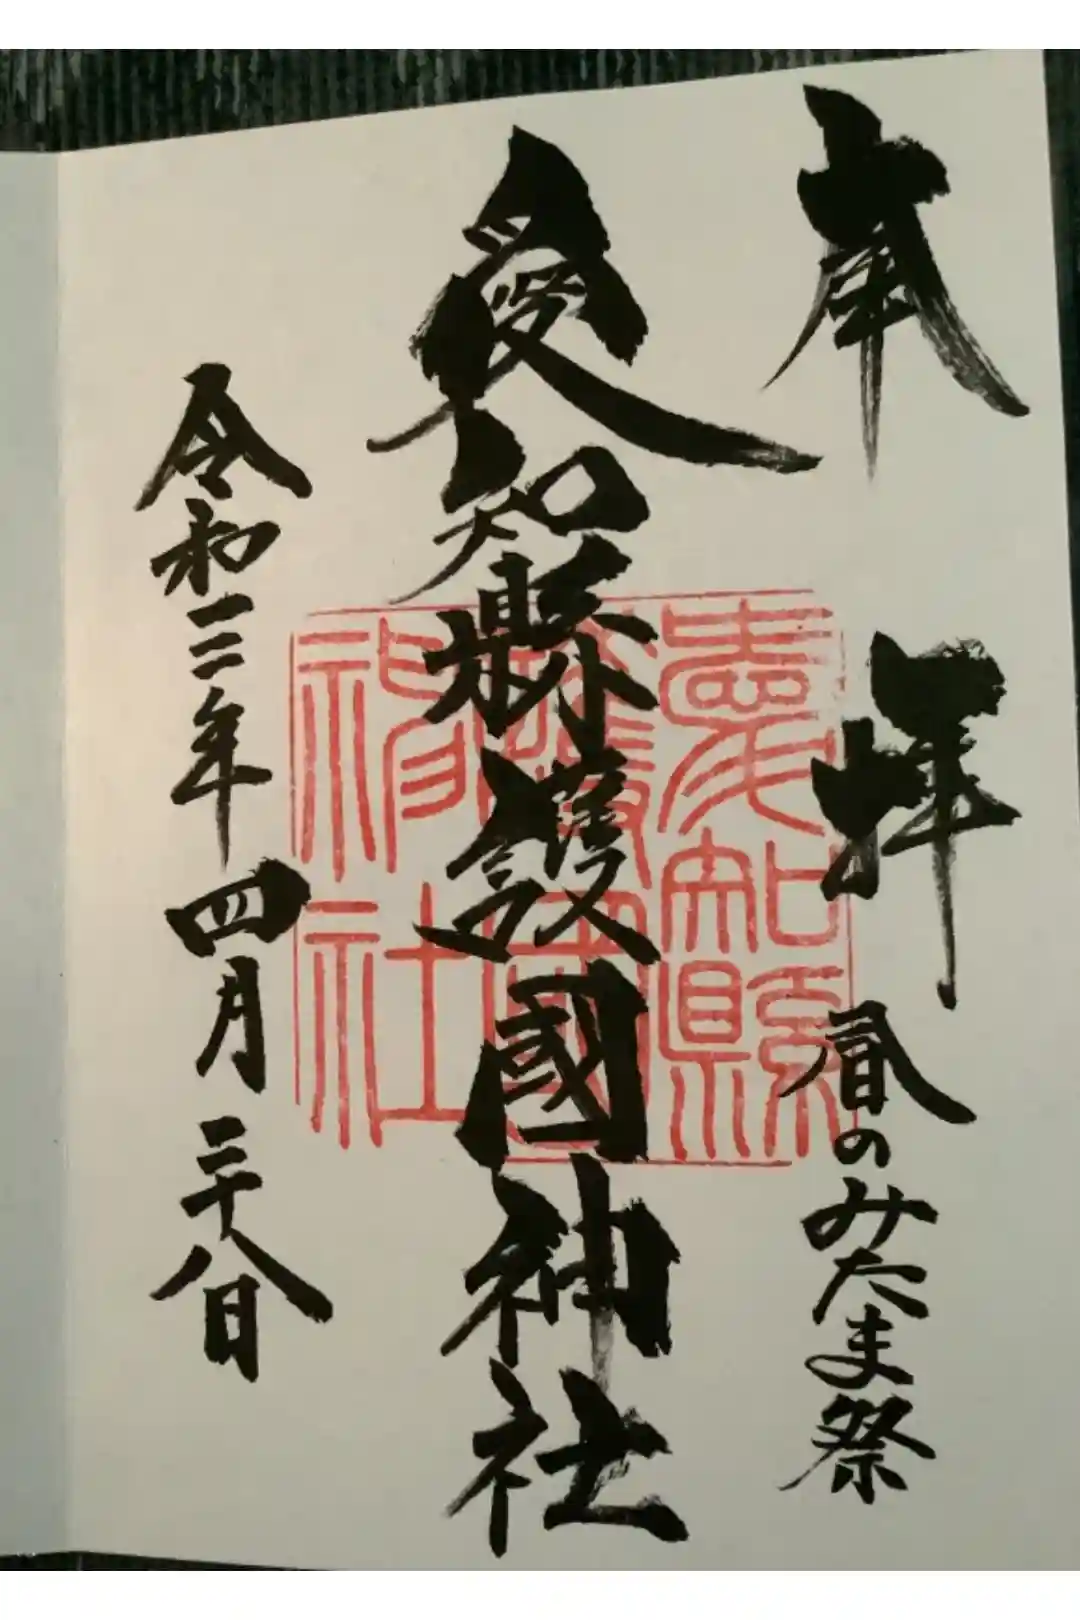 奉拝 春のみたま祭
愛知縣護國神社
令和三年四月二十八日
愛知縣
護國
神社